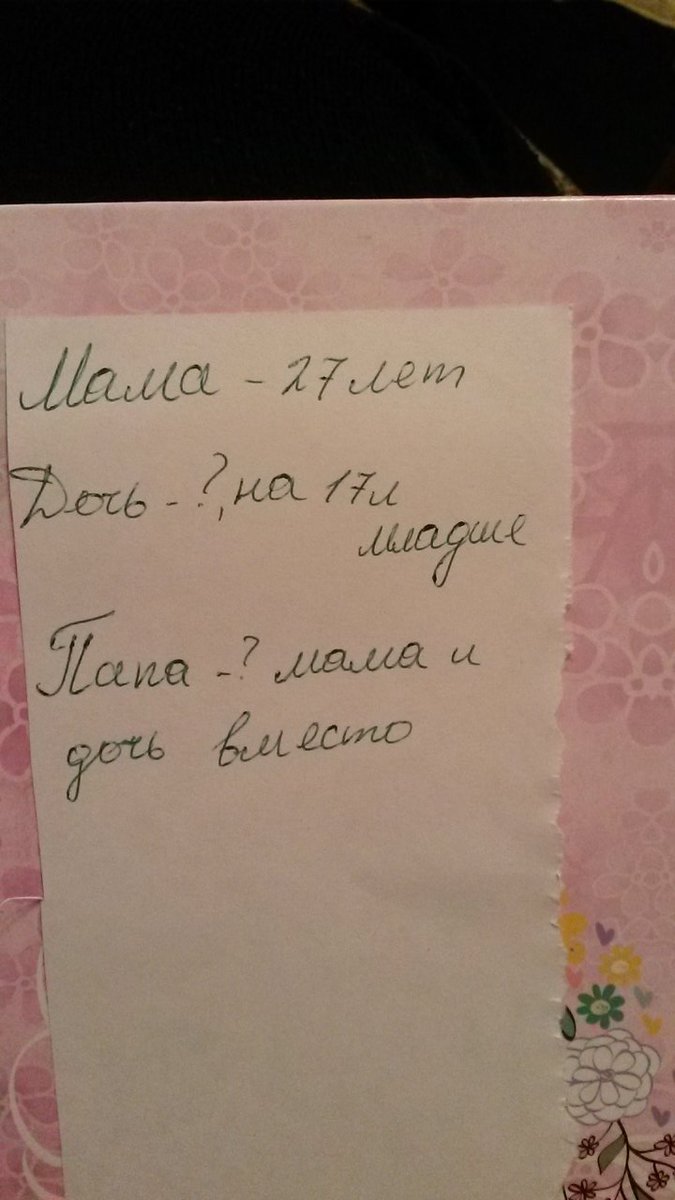 Мама - 27 лет
Дочь - ?, на 17 л
младше
Папа - ? мама и
дочь вместо